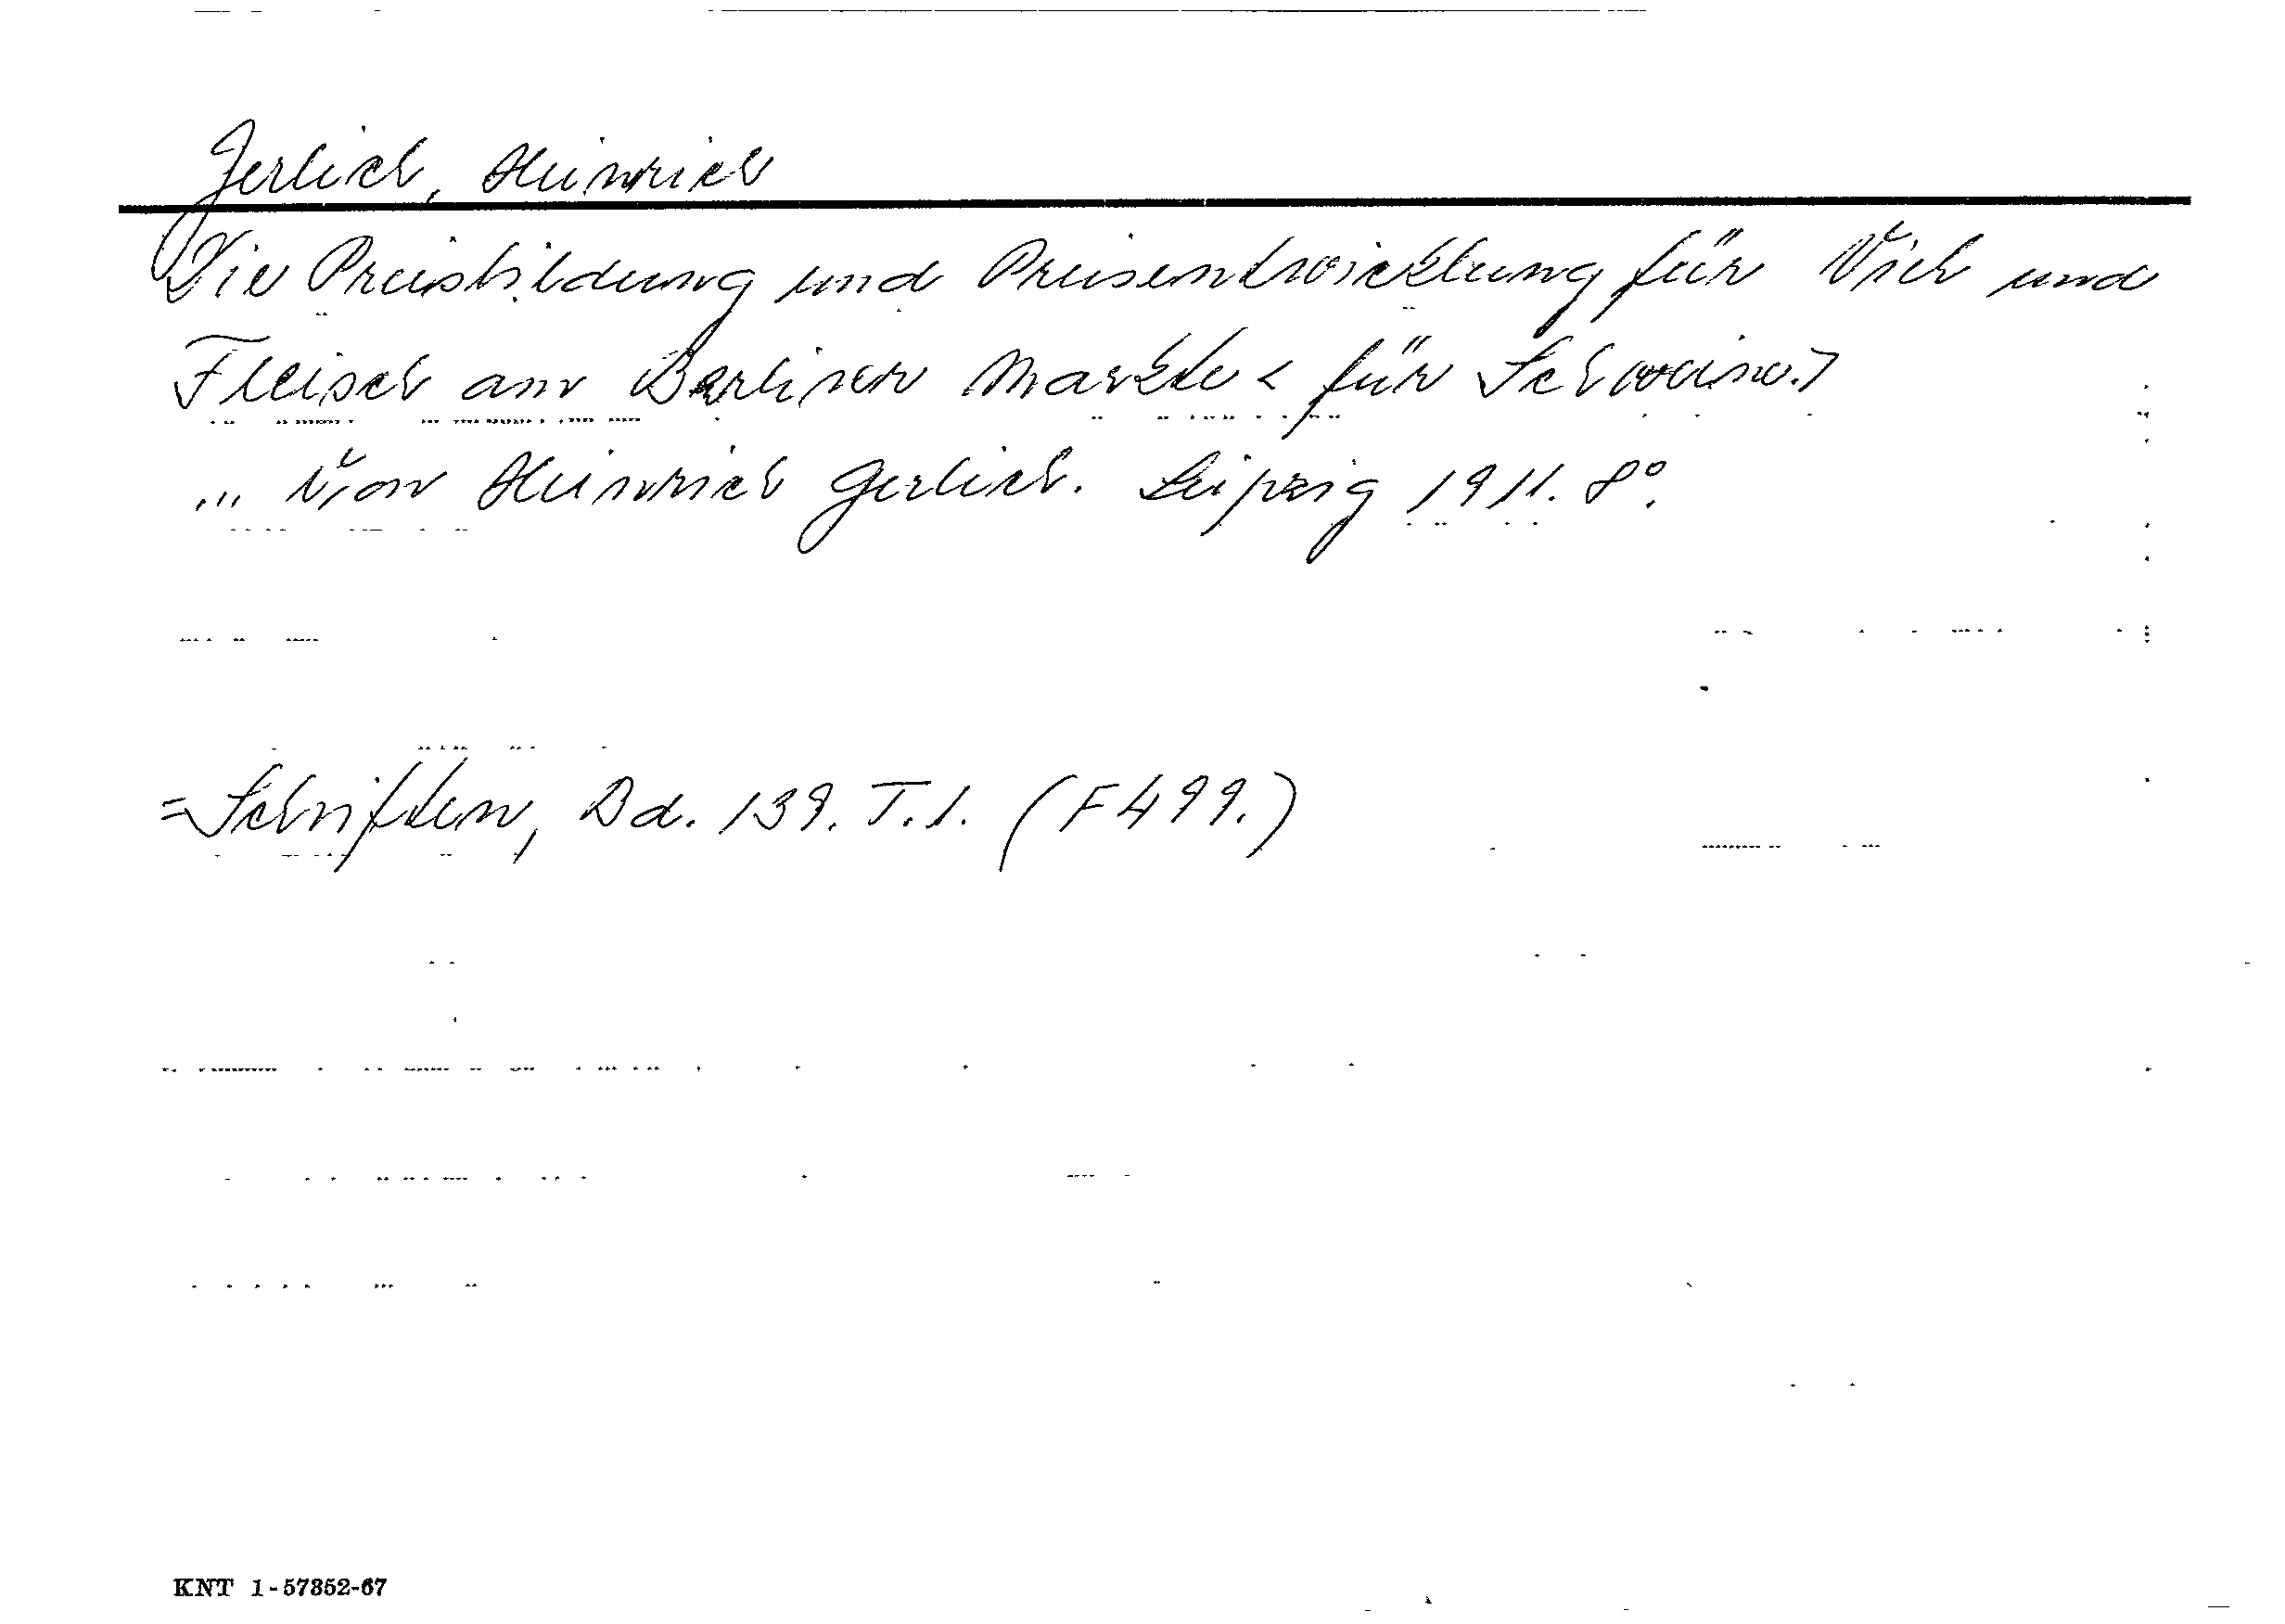 Gerlich, Heinrich
Die Preisbildung und Preisentwicklung für Vieh und
Fleisch am Berliner Markte < für Schweine.>
... Von Heinrich Gerlich. Leipzig 1911. 8°.
= Schriften, Bd. 139. T.1. (F499.)
KNT 1-57352-67